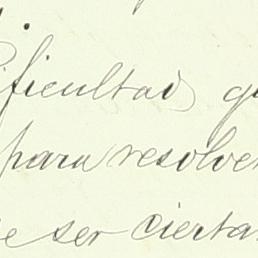 dificultad
para resolver
ser cierta